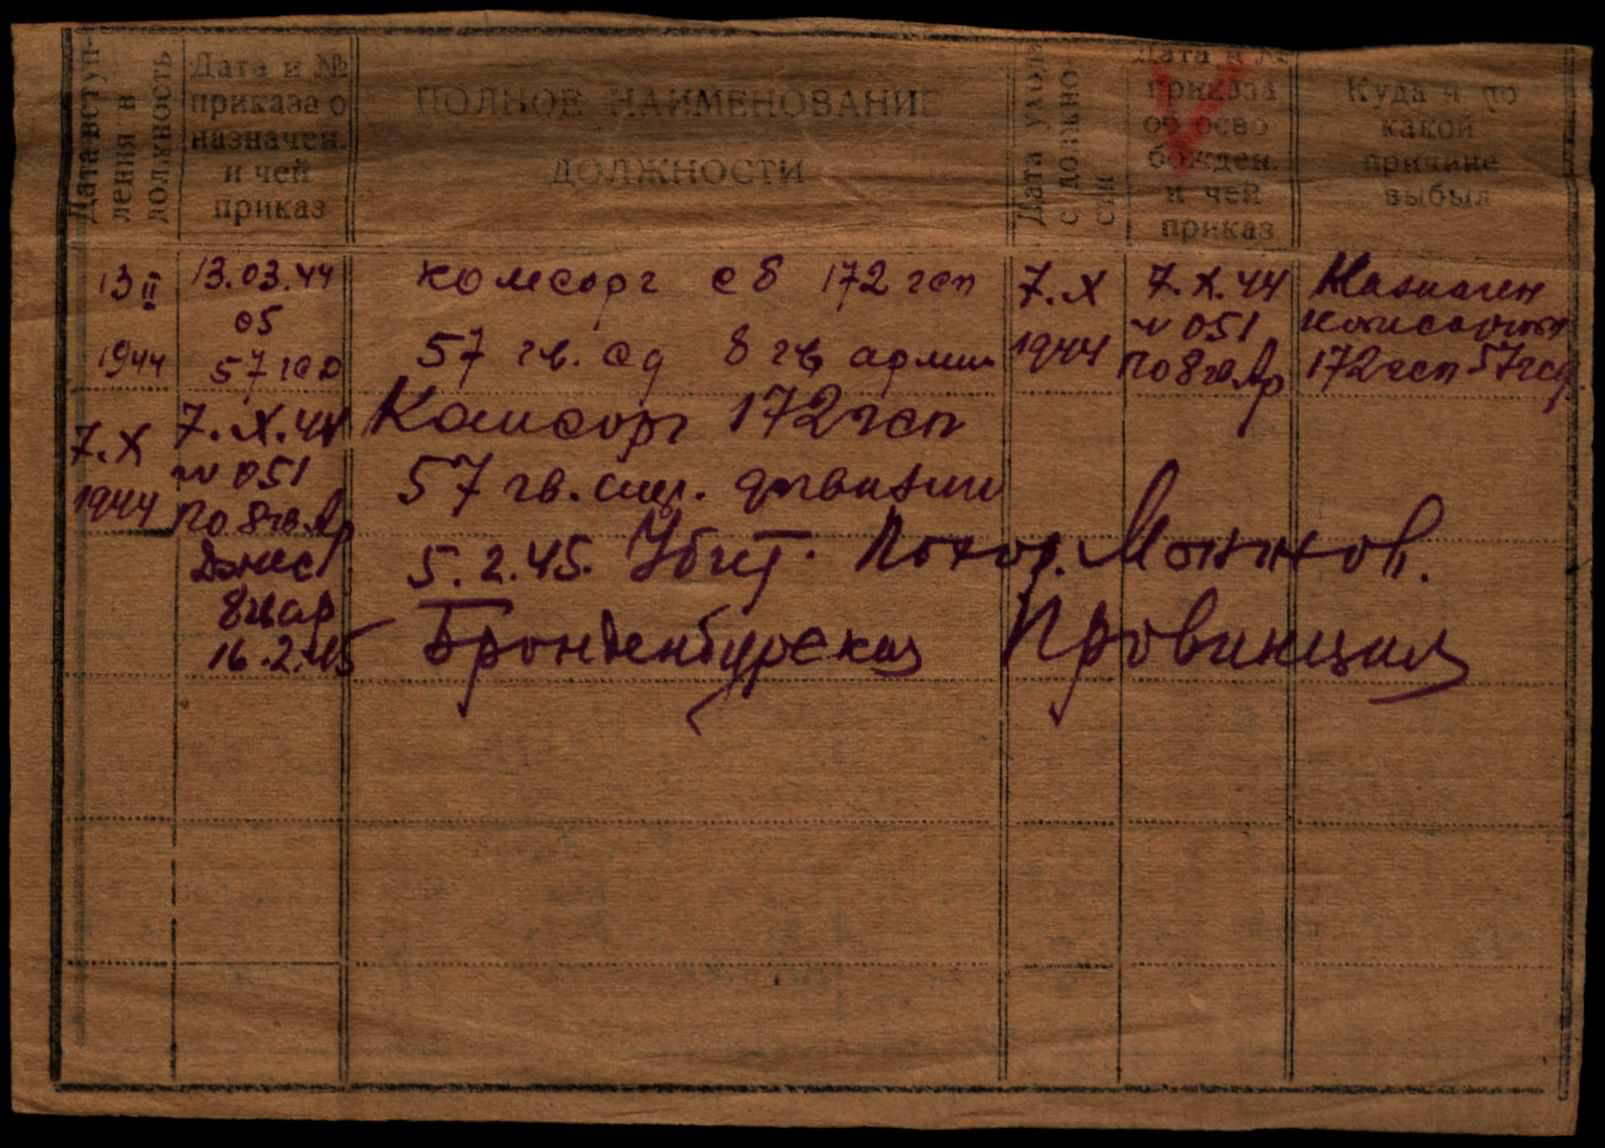 Дата вступ-
ления в
должность
Дата и №
приказа о
назначен.
и чей
приказ
ПОЛНОЕ НАИМЕНОВАНИЕ
ДОЛЖНОСТИ
Дата ухода
с должно-
сти
Дата и №
приказа
об осво-
божден.
и чей
приказ
Куда и по
какой
причине
выбыл
13 II
1944
13.03.44
05
57 гсд
комсорг сб 172 гсп
57 гв. сд 8 гв армии
7.X
1944
7.X.44
№ 051
ПО 8 гв. Ар
Назначен
комсоргом
172 гсп 57 гсд
7.X
1944
7.X.44
№ 051
ПО 8 гв. Ар
Комсорг 172 гсп
57 гв. стр. дивизии
Донес.
8 гв ар
16.2.45
5.2.45. Убит. Похор.
Бранденбургская Провинция